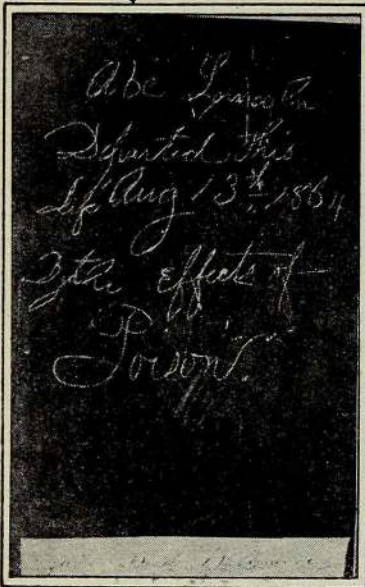 Abe Lincoln
Departed this
Life Aug 13th 1864
By the effects of
Poison.